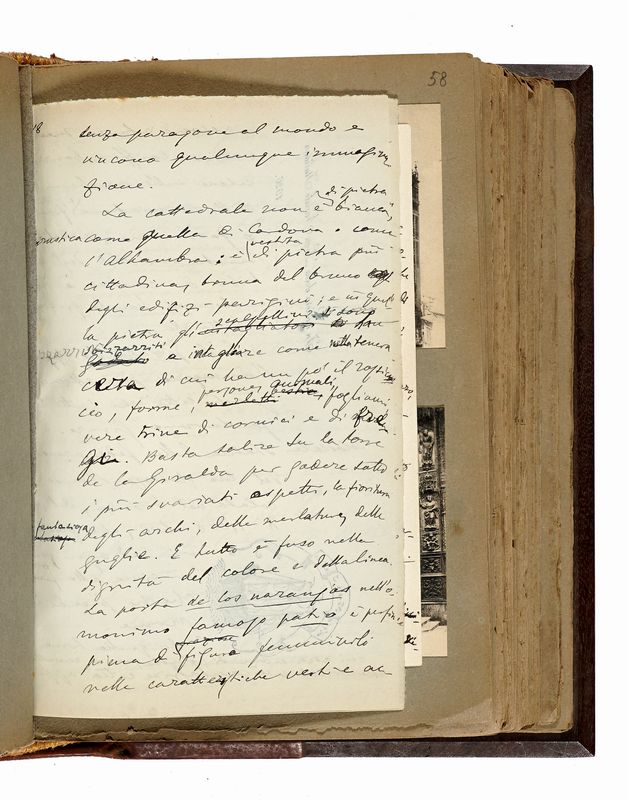 58
senza paragone al mondo e
vincono qualunque immagina
zione.
di pietra
La cattedrale non è bianca,
come quella di Cordova o come
vestita
l'Alhambra: è di pietra più
cittadina, bruna del bruno
degli edifizi parigini; e in quel
scalpellini si sono
la pietra gli
sbizzarriti
a intagliare come nella tenera
cera di cui ha un po' il
cio, forme, persone, animali, fogliami
vere trine di cornici e di fre
gi. Basta salire su la torre
de la Giralda per godere sotto
i più svariati aspetti, la fioritura
fantasiosa
degli archi, delle merlature, delle
guglie. E tutto è fuso nella
dignità del colore e della linea.
La porta de los naranjos nell'o
monimo famoso patio è
piena di figure femminili
nelle caratteristiche vesti e ac